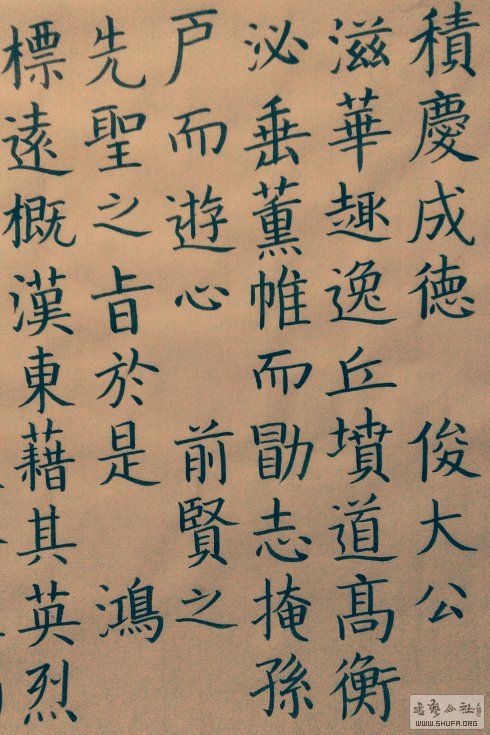 積慶成德 俊大公
滋華趣逸丘墳道髙衡
泌垂薰帷而勖志掩孫
戶而遊心 前賢之
先聖之旨於是 鴻
標遠概漢東藉其英烈
公社
WWW.SHUFA.ORG